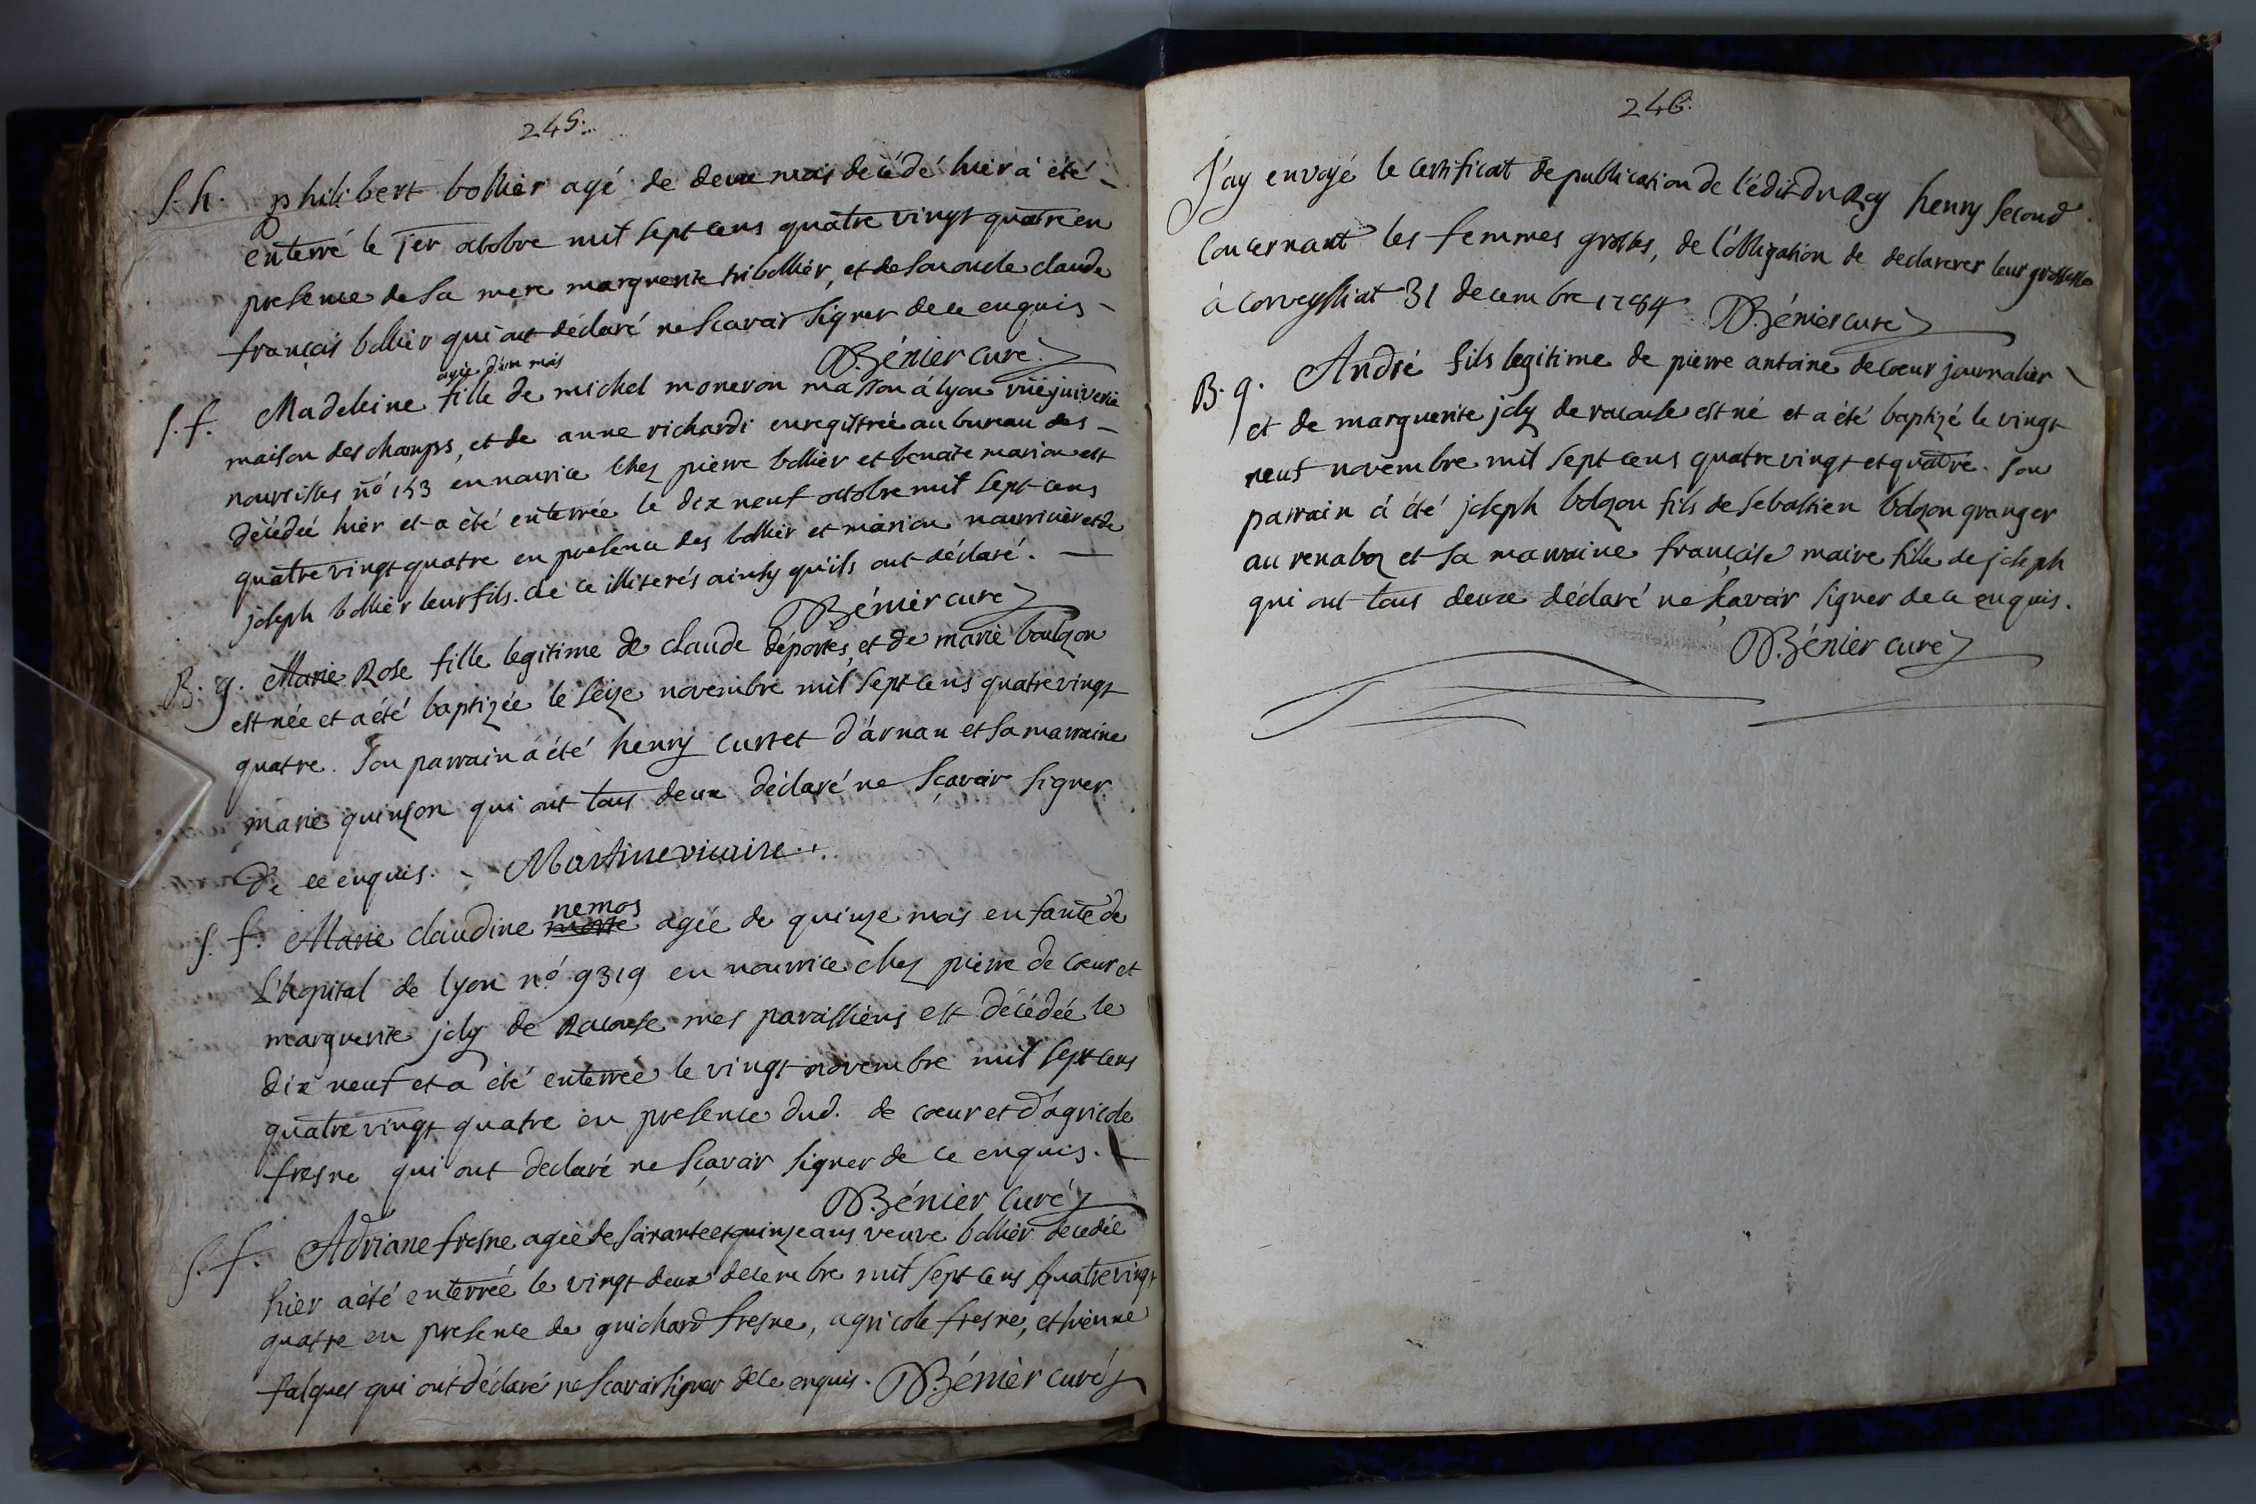 245.
S. h. philibert bollier agé de deux mois décédé hier a été
enterré le 1er octobre mil sept cens quatre vingt quatre en
presence de sa mere marguerite tribollier, et de son oncle claude
françois bollier qui ont déclaré ne scavoir signer de ce enquis
B.Bénier curé
agée d'un mois
S. f. Madeleine fille de michel moneron masson à lyon rüe juiverie
maison deschamps, et de anne richardi enregistrée au bureau des
nourrisses no 153 en nourice chez pierre bollier et benoite marion est
décédée hier et a été enterrée le dix neuf octobre mil sept cens
quatre vingt quatre en presence des bollier et marion nourriciers et de
joseph bollier leur fils. de ce illiterés ainsy qu'ils ont déclaré.
B.Bénier curé
B. g. Marie Rose fille legitime de claude déportes, et de marie boulzon
est née et a été baptizée le seize novembre mil sept cens quatre vingt
quatre. Son parrain a été henry curtet d'arnan et sa marraine
marie quinson qui ont tous deux déclaré ne sçavoir signer
de ce enquis. Martine vicaire.
nemos
S. f. Marie claudine morte agée de quinze mois enfante de
L'hopital de lyon no. 9319 en nourrice chez pierre de cœur et
marguerite joly de Racouse mes paroissiens est décédée le
dix neuf et a été enterrée le vingt novembre mil sept cens
quatre vingt quatre en presence dud. de cœur et d'agricole
fresne qui ont declaré ne sçavoir signer de ce enquis.
B.Bénier curé
S. f. Adriane fresne agée de soixante et quinze ans veuve bollier décédée
hier a été enterrée le vingt deux decembre mil sept cens quatre vingt
quatre en presence de guichard fresne, agricole fresne, ethienne
falques qui ont déclaré ne scavoir signer de ce enquis. B.Bénier curé
246.
J'ay envoyé le certificat de publication de l'édit du Roy henry second
concernant les femmes grosses, de l'obligation de declarerer leur grossesse
à corveyssiat 31 decembre 1784 B.Bénier curé
B. g. André fils legitime de pierre antoine decœur journalier
et de marguerite joly de racouse est né et a été baptizé le vingt
neuf novembre mil sept cens quatre vingt et quatre. son
parrain a été joseph bolzon fils de sebastien bolzon granger
au renaboz et sa marraine françoise maire fille de joseph
qui ont tous deux déclaré ne sçavoir signer de ce enquis.
B.Bénier curé